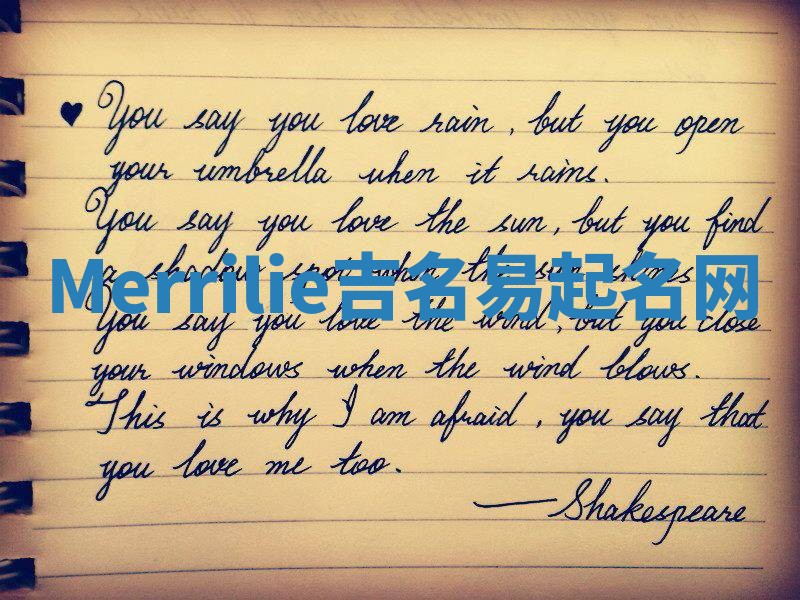 ♥ You say you love rain, but you open
your umbrella when it rains.
You say you love the sun, but you find
a shadow spot when the sun shines
Merrilie吉名易起名网
You say you love the wind, but you close
your windows when the wind blows.
This is why I am afraid, you say that
you love me too.
— Shakespeare